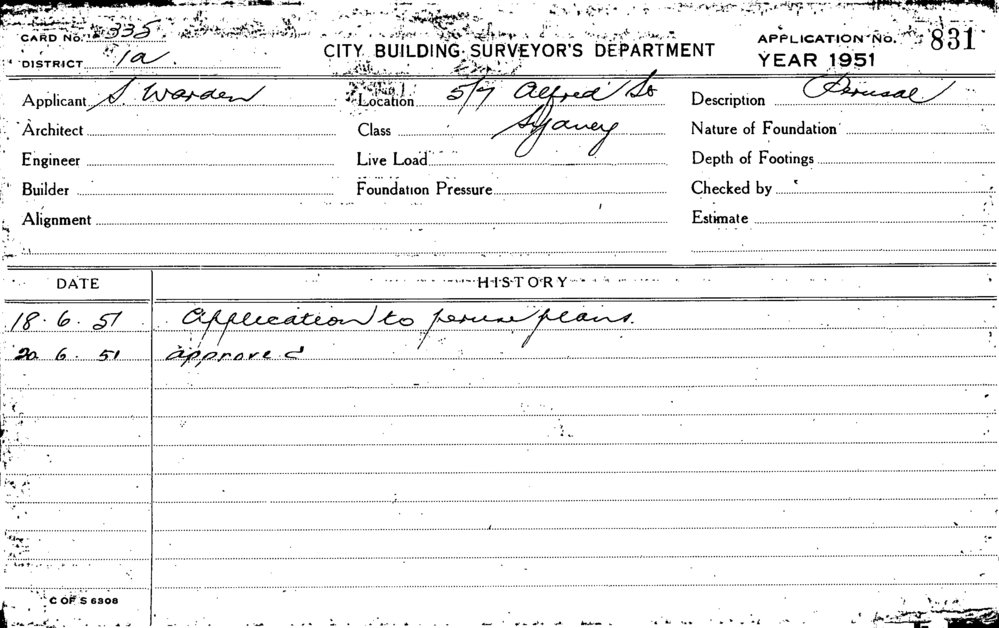 CARD No. 335
DISTRICT 1a.
CITY BUILDING SURVEYOR'S DEPARTMENT
APPLICATION No. 831
YEAR 1951
Applicant S. Warden
Location 5/7 Alfred St
Description Perusal
Architect
Class Sydney
Nature of Foundation
Engineer
Live Load
Depth of Footings
Builder
Foundation Pressure
Checked by
Alignment
Estimate
DATE HISTORY
18.6.51 Application to peruse plans.
20.6.51 approved
C OF S 6308